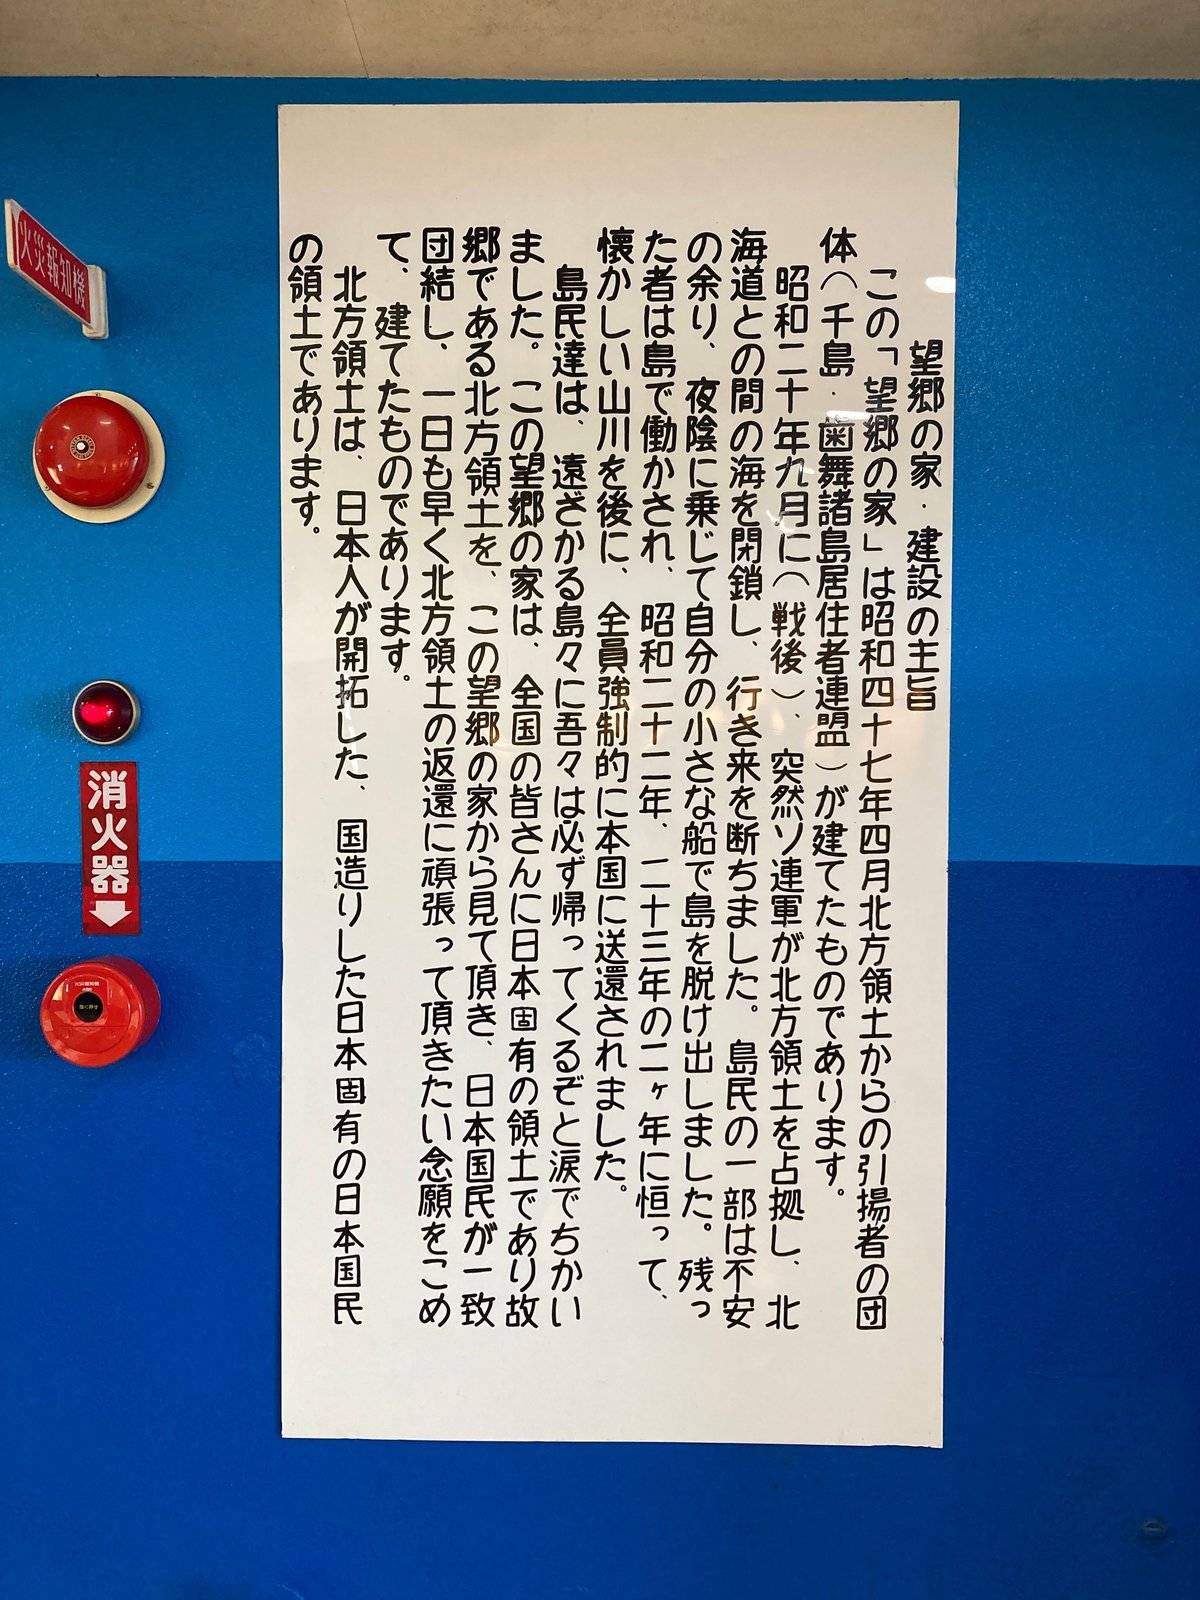 望郷の家・建設の主旨
この「望郷の家」は昭和四十七年四月北方領土からの引揚者の団
体（千島・歯舞諸島居住者連盟）が建てたものであります。
昭和二十年九月に（戦後）、突然ソ連軍が北方領土を占拠し、北
海道との間の海を閉鎖し、行き来を断ちました。島民の一部は不安
の余り、夜陰に乗じて自分の小さな船で島を脱け出しました。残っ
た者は島で働かされ、昭和二十二年、二十三年の二ヶ年に恒って、
懐かしい山川を後に、全員強制的に本国に送還されました。
島民達は、遠ざかる島々に吾々は必ず帰ってくるぞと涙でちかい
ました。この望郷の家は、全国の皆さんに日本固有の領土であり故
郷である北方領土を、この望郷の家から見て頂き、日本国民が一致
団結し、一日も早く北方領土の返還に頑張って頂きたい念願をこめ
て、建てたものであります。
北方領土は、日本人が開拓した、国造りした日本固有の日本国民
の領土であります。
火災報知機
消火器
火災報知機
強く押す